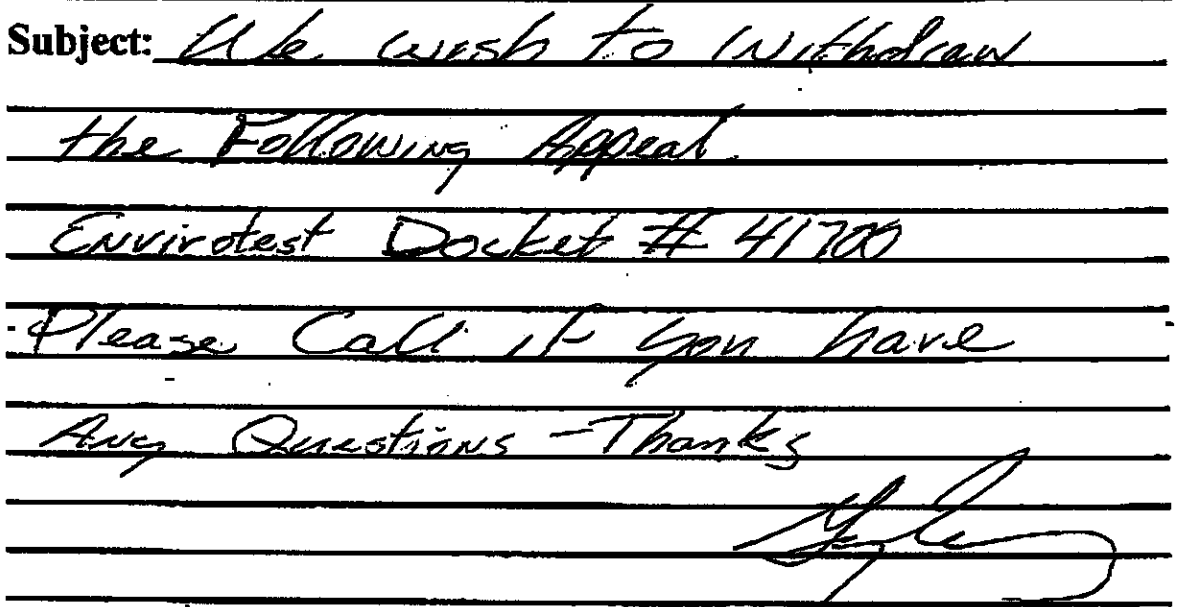 Subject: We wish to Withdraw
the Following Appeal.
Envirotest Docket # 41700
Please Call if you have
Any Questions - Thanks